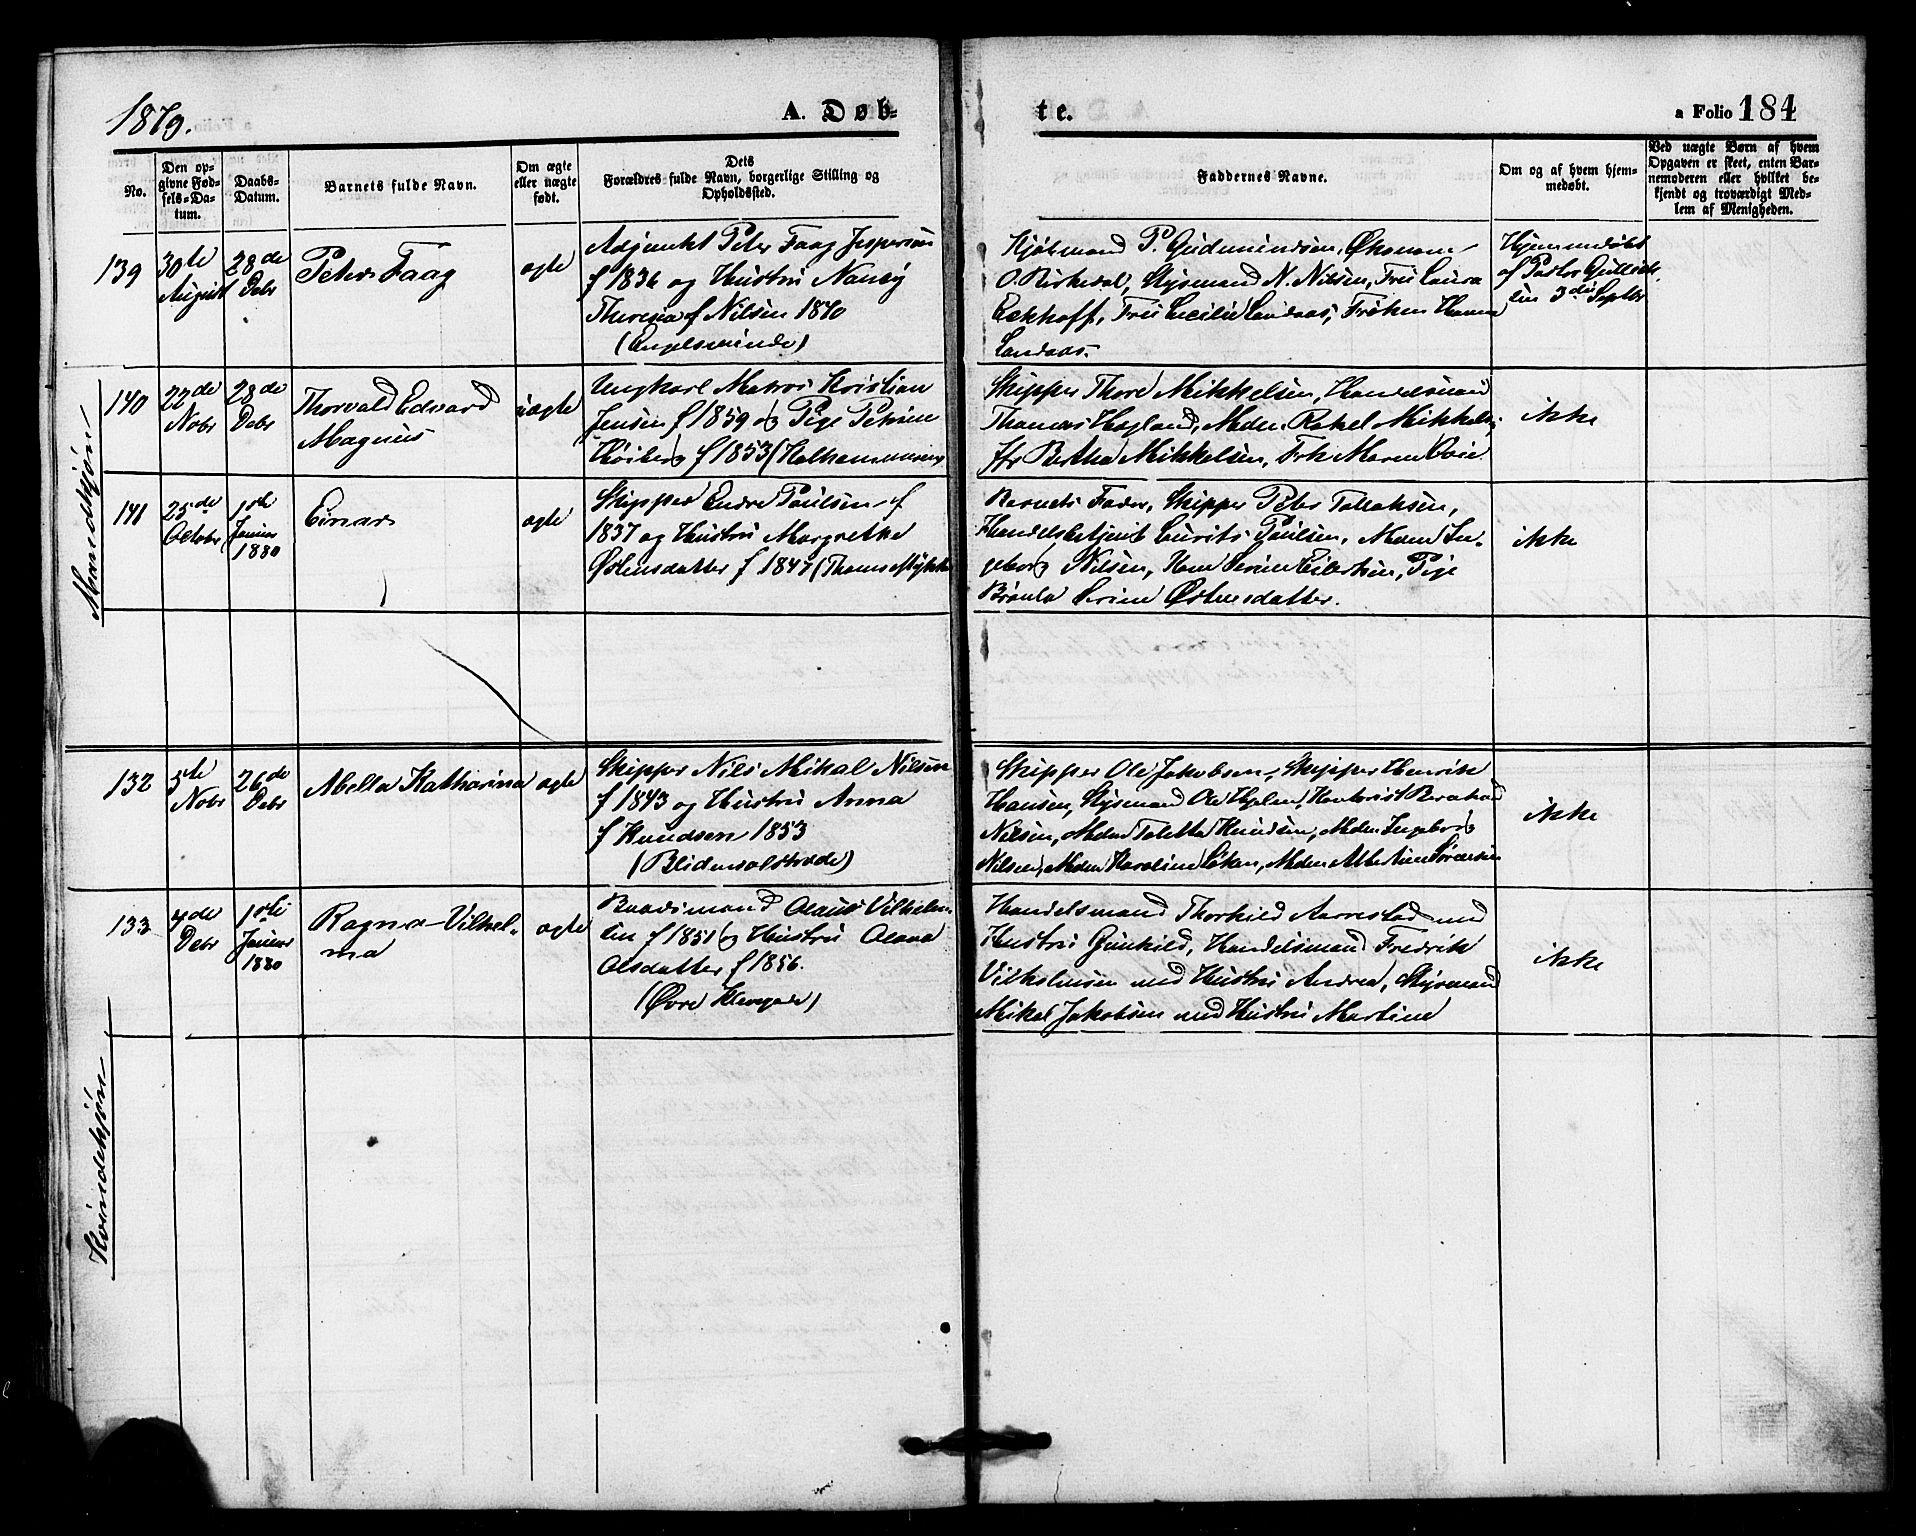 1879.
A. Døb-
te.
a Folio 184
No.
Den op-
givne Fød-
sels-Da-
tum.
Daabs-
Datum.
Barnets fulde Navn.
Om ægte
eller uægte
født.
Dets
Forældres fulde Navn, borgerlige Stilling og
Opholdssted.
Faddernes Navne.
Om og af hvem hjem-
medøbt.
Ved uægte Børn af hvem
Opgaven er skeet, enten Bar-
nemoderen eller hvilket be-
kjendt og troværdigt Med-
lem af Menigheden.
Mandkjøn
139
30te
August
28de
Debr
Peter Faag
ægte
Adjunkt Peter Faag Jespersen
f 1836 og Hustru Nancy
Theresia f Nilsen 1870
(Engelsminde)
Kjøbmand P. Gudmundsen, Økonom
O. Birkedal, Styrmand N. Nilsen, Fru Laura
Eckhoff, Fru Cecilie Landaas, Frøken Hanna
Landaas.
Hjemmedøbt
af Pastor
den 3die Septbr
140
22de
Nobr
28de
Debr
Thorvald Edvard
Magnus
uægte
Ungkarl Matros Kristian
Jensen f 1859 og Pige Petrine
Høiberg f 1853 (Halhammeren)
Skipper Thore Mikkelsen, Handelsmand
Thomas Høgland, Mdm. Rakel Mikkelsen,
Fr Bertha Mikkelsen, Frk Maren
ikke
141
25de
Octobr
1ste
Januar
1880
Einar
ægte
Skipper Endre Paulsen f
1837 og Hustru Margrethe
Østensdatter f 1847
Barnets Fader, Skipper Peter Tollaksen,
Handelsbetjent Laurits Paulsen, Mdm In-
geborg Nilsen, Mdm Serine Eilertsen, Pige
Serine Østensdatter.
ikke
Kvindekjøn
132
5te
Nobr
26de
Debr
Abella Katharina
ægte
Skipper Nils Mikal Nilsen
f 1843 og Hustru Anna
f Knudsen 1853
(Blidensolstræde)
Skipper Ole Jakobsen, Skipper Henrik
Hansen, Styrmand Ole Kontorist
Nilsen, Mdm Toletta Knudsen, Mdm Ingeborg
Nilsen, Mdm Karoline Mdm Albertine Sørensen
ikke
133
7de
Debr
1ste
Januar
1880
Ragna Vilhel-
ma
ægte
Baadsmand Olaus Vilhelm-
sen f 1851 og Hustru Olava
Olsdatter f 1856.
(Øvre Klevgade)
Handelsmand Thorkild Aarrestad med
Hustru Gunhild, Handelsmand Fredrik
Vilhelmsen med Hustru Andrea, Styrmand
Mikal Jakobsen med Hustru Martine
ikke